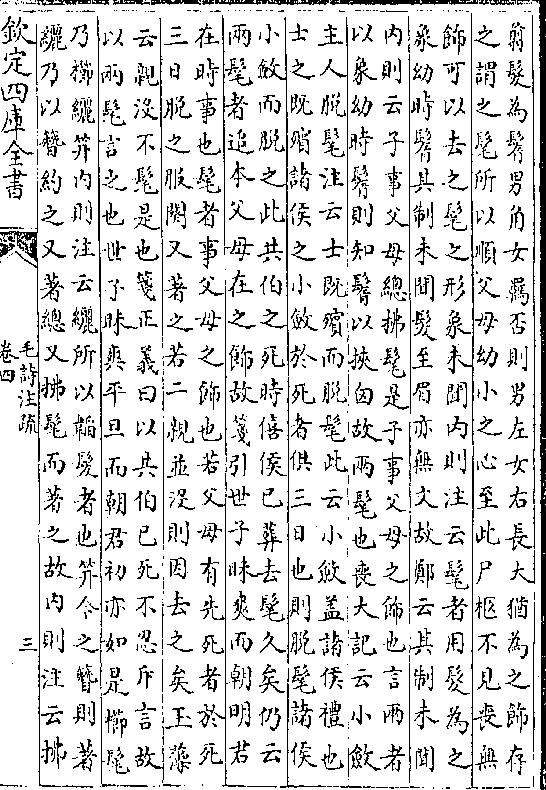 翦髮為鬌男角女羈否則男左女右長大猶為之飾存
之謂之髦所以順父母幼小之心至此尸柩不見喪無
飾可以去之髦之形象未聞内則注云髦者用髮為之
象幼時鬌其制未聞髮至眉亦無文故鄭云其制未聞
内則云子事父母總拂髦是子事父母之飾也言兩者
以象幼時鬌則知鬌以挾囟故兩髦也喪大記云小斂
主人脱髦注云士既殯而脱髦此云小斂蓋諸侯禮也
士之既殯諸侯之小斂於死者俱三日也則脱髦諸侯
小斂而脱之此共伯之死時僖侯已葬去髦久矣仍云
兩髦者追本父母在之飾故箋引世子昧爽而朝明君
在時事也髦者事父母之飾也若父母有先死者於死
三日脱之服闋又著之若二親並没則因去之矣玉藻
云親没不髦是也箋正義曰以共伯已死不忍斥言故
以兩髦言之也世子昧爽平旦而朝君初亦如是櫛髦
乃櫛纚笄内則注云纚所以韜髮者也笄今之簪則著
纚乃以簪約之又著總又拂髦而著之故内則注云拂
欽定四庫全書
毛詩注疏
卷四
三